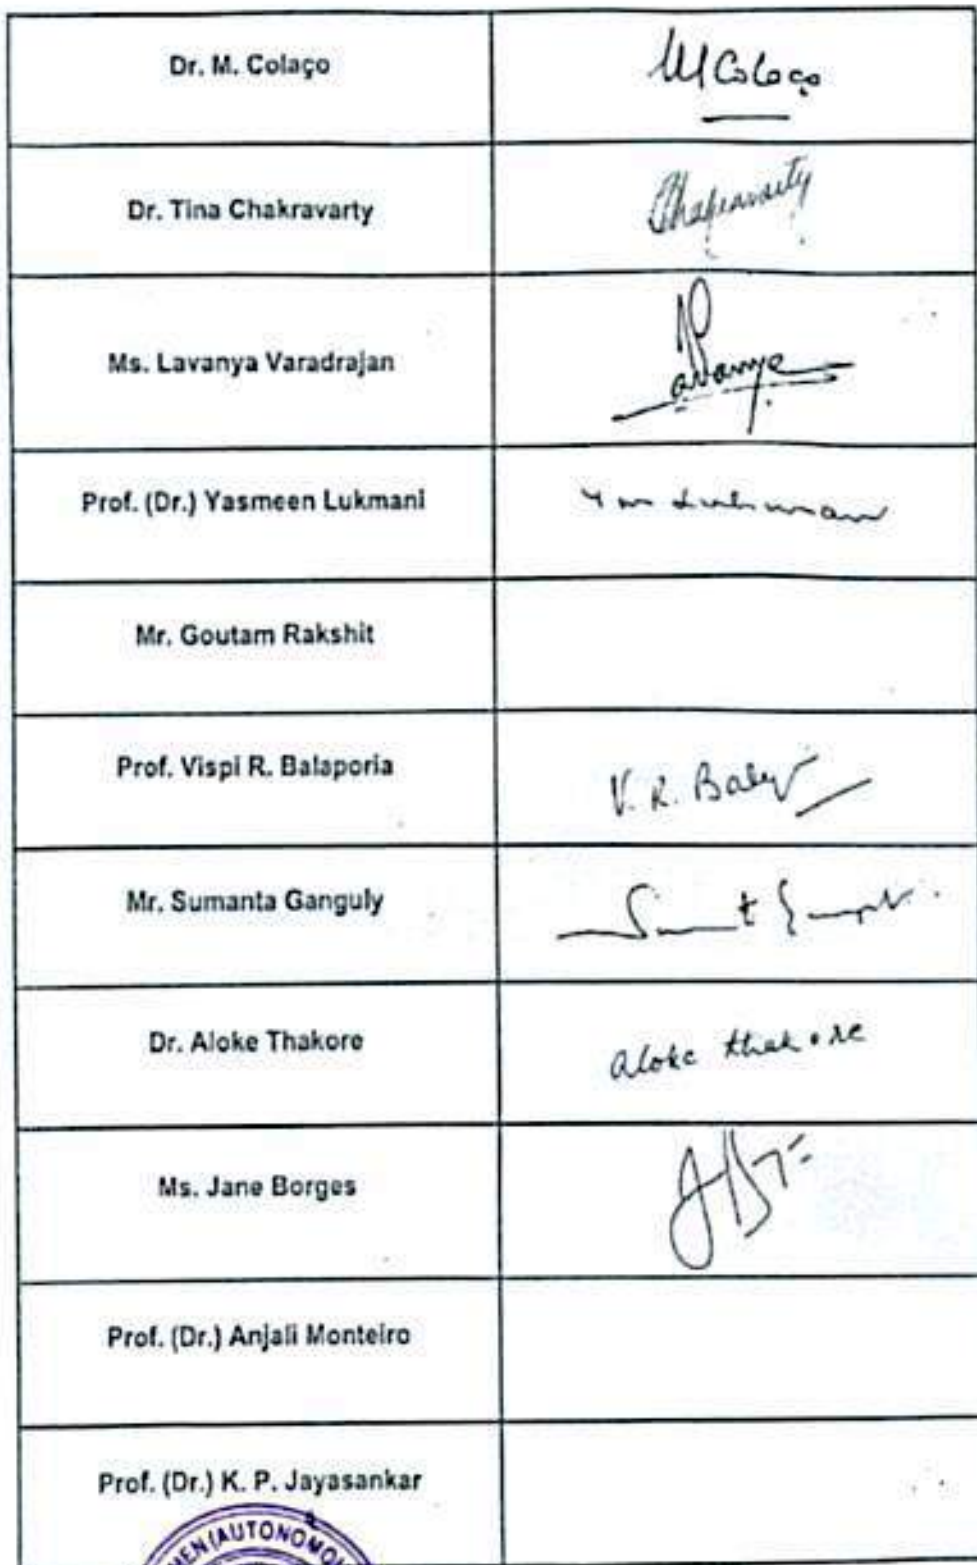 Dr. M. Colaço
M Colaço
Dr. Tina Chakravarty
Chakravarty
Ms. Lavanya Varadrajan
Lavanya
Prof. (Dr.) Yasmeen Lukmani
Mr. Goutam Rakshit
Prof. Vispi R. Balaporia
V. R. 
Mr. Sumanta Ganguly
Dr. Aloke Thakore
Aloke Thakore
Ms. Jane Borges
Prof. (Dr.) Anjali Monteiro
Prof. (Dr.) K. P. Jayasankar
(AUTONOMO